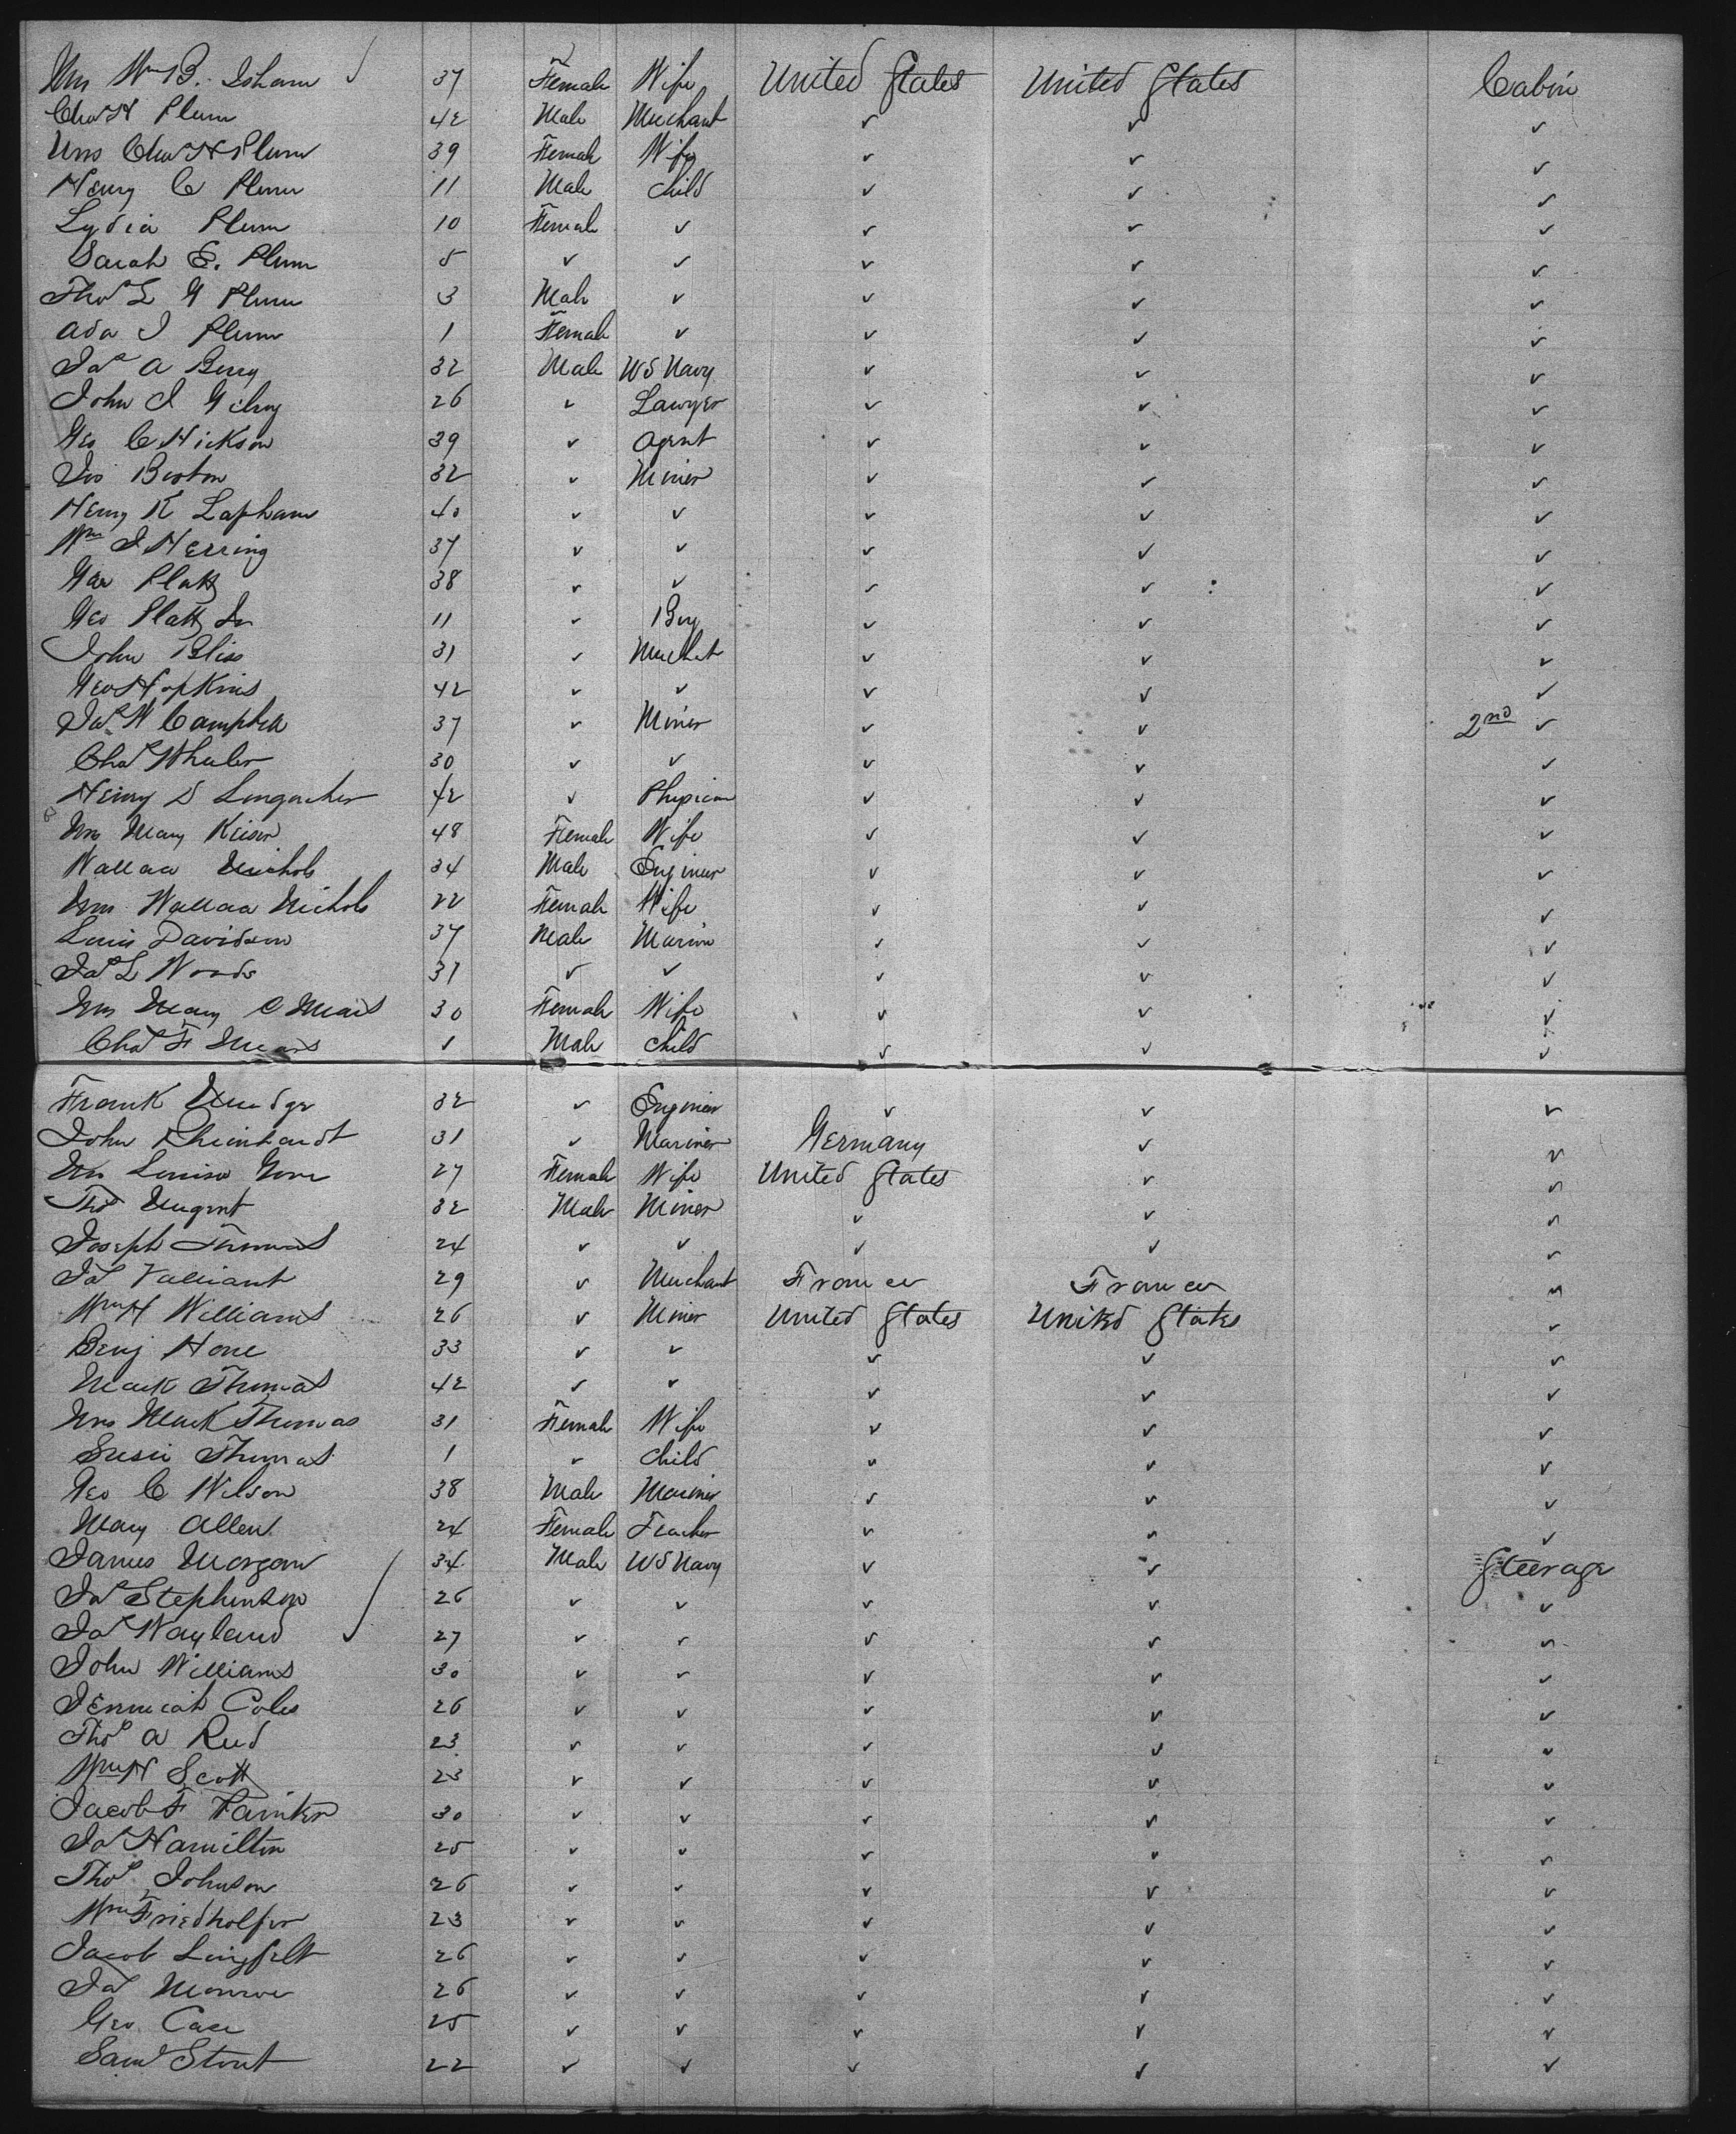 Mrs Wm B. Isham 37 Female Wife United States United States Cabin
Chas H Plum 42 Male Merchant ✓ ✓ ✓
Mrs Chas H Plum 39 Female Wife ✓ ✓ ✓
Henry C Plum 11 Male Child ✓ ✓ ✓
Lydia Plum 10 Female ✓ ✓ ✓ ✓
Sarah E. Plum 5 ✓ ✓ ✓ ✓ ✓
Thos L G Plum 3 Male ✓ ✓ ✓ ✓
Ada I Plum 1 Female ✓ ✓ ✓ ✓
Jas A Berry 32 Male US Navy ✓ ✓ ✓
John J Gilroy 26 ✓ Lawyer ✓ ✓ ✓
Geo C Hickson 39 ✓ Agent ✓ ✓ ✓
Jos Boston 32 ✓ Miner ✓ ✓ ✓
Henry K Lapham 40 ✓ ✓ ✓ ✓ ✓
Wm J Herring 37 ✓ ✓ ✓ ✓ ✓
Geo Platt 38 ✓ ✓ ✓ ✓ ✓
Geo Platt Jr 11 ✓ Boy ✓ ✓ ✓
John Bliss 31 ✓ Merchat ✓ ✓ ✓
Geo Hopkins 42 ✓ ✓ ✓ ✓ ✓
Jas W Campbell 37 ✓ Miner ✓ ✓ 2nd ✓
Chas Wheeler 30 ✓ ✓ ✓ ✓ ✓
Henry D Longacher 42 ✓ Physician ✓ ✓ ✓
Mrs Mary Keiser 48 Female Wife ✓ ✓ ✓
Wallace Nichols 34 Male Engineer ✓ ✓ ✓
Mrs Wallace Nichols 22 Female Wife ✓ ✓ ✓
Louis Davidson 37 Male Marine ✓ ✓ ✓
Jas L Woods 31 ✓ ✓ ✓ ✓ ✓
Mrs Mary C Mears 30 Female Wife ✓ ✓ ✓
Chas F Mears 1 Male Child ✓ ✓ ✓
Frank Mudge 32 ✓ Engineer ✓ ✓ ✓
John Rheinhardt 31 ✓ Mariner Germany ✓ ✓
Mrs Louise Gove 27 Female Wife United States ✓ ✓
Thos Nugent 32 Male Miner ✓ ✓ ✓
Joseph Thomas 24 ✓ ✓ ✓ ✓ ✓
Jas Valliant 29 ✓ Merchant France France ✓
Wm H Williams 26 ✓ Miner United States United States ✓
Benj Hone 33 ✓ ✓ ✓ ✓ ✓
Mark Thomas 42 ✓ ✓ ✓ ✓ ✓
Mrs Mark Thomas 31 Female Wife ✓ ✓ ✓
Susie Thomas 1 ✓ Child ✓ ✓ ✓
Geo C Wilson 38 Male Mariner ✓ ✓ ✓
Mary Allen 24 Female Teacher ✓ ✓ ✓
James Morgan 34 Male US Navy ✓ ✓ Steerage
Jas Stephenson 26 ✓ ✓ ✓ ✓ ✓
Jas Wayland 27 ✓ ✓ ✓ ✓ ✓
John Williams 30 ✓ ✓ ✓ ✓ ✓
Jeremiah Coles 26 ✓ ✓ ✓ ✓ ✓
Thos A Reed 23 ✓ ✓ ✓ ✓ ✓
Wm H Scott 23 ✓ ✓ ✓ ✓ ✓
Jacob F Painter 30 ✓ ✓ ✓ ✓ ✓
Jas Hamilton 25 ✓ ✓ ✓ ✓ ✓
Thos Johnson 26 ✓ ✓ ✓ ✓ ✓
Wm Friedholfer 23 ✓ ✓ ✓ ✓ ✓
Jacob Lingfelt 26 ✓ ✓ ✓ ✓ ✓
Jas Monroe 26 ✓ ✓ ✓ ✓ ✓
Geo. Case 25 ✓ ✓ ✓ ✓ ✓
Saml Stout 22 ✓ ✓ ✓ ✓ ✓